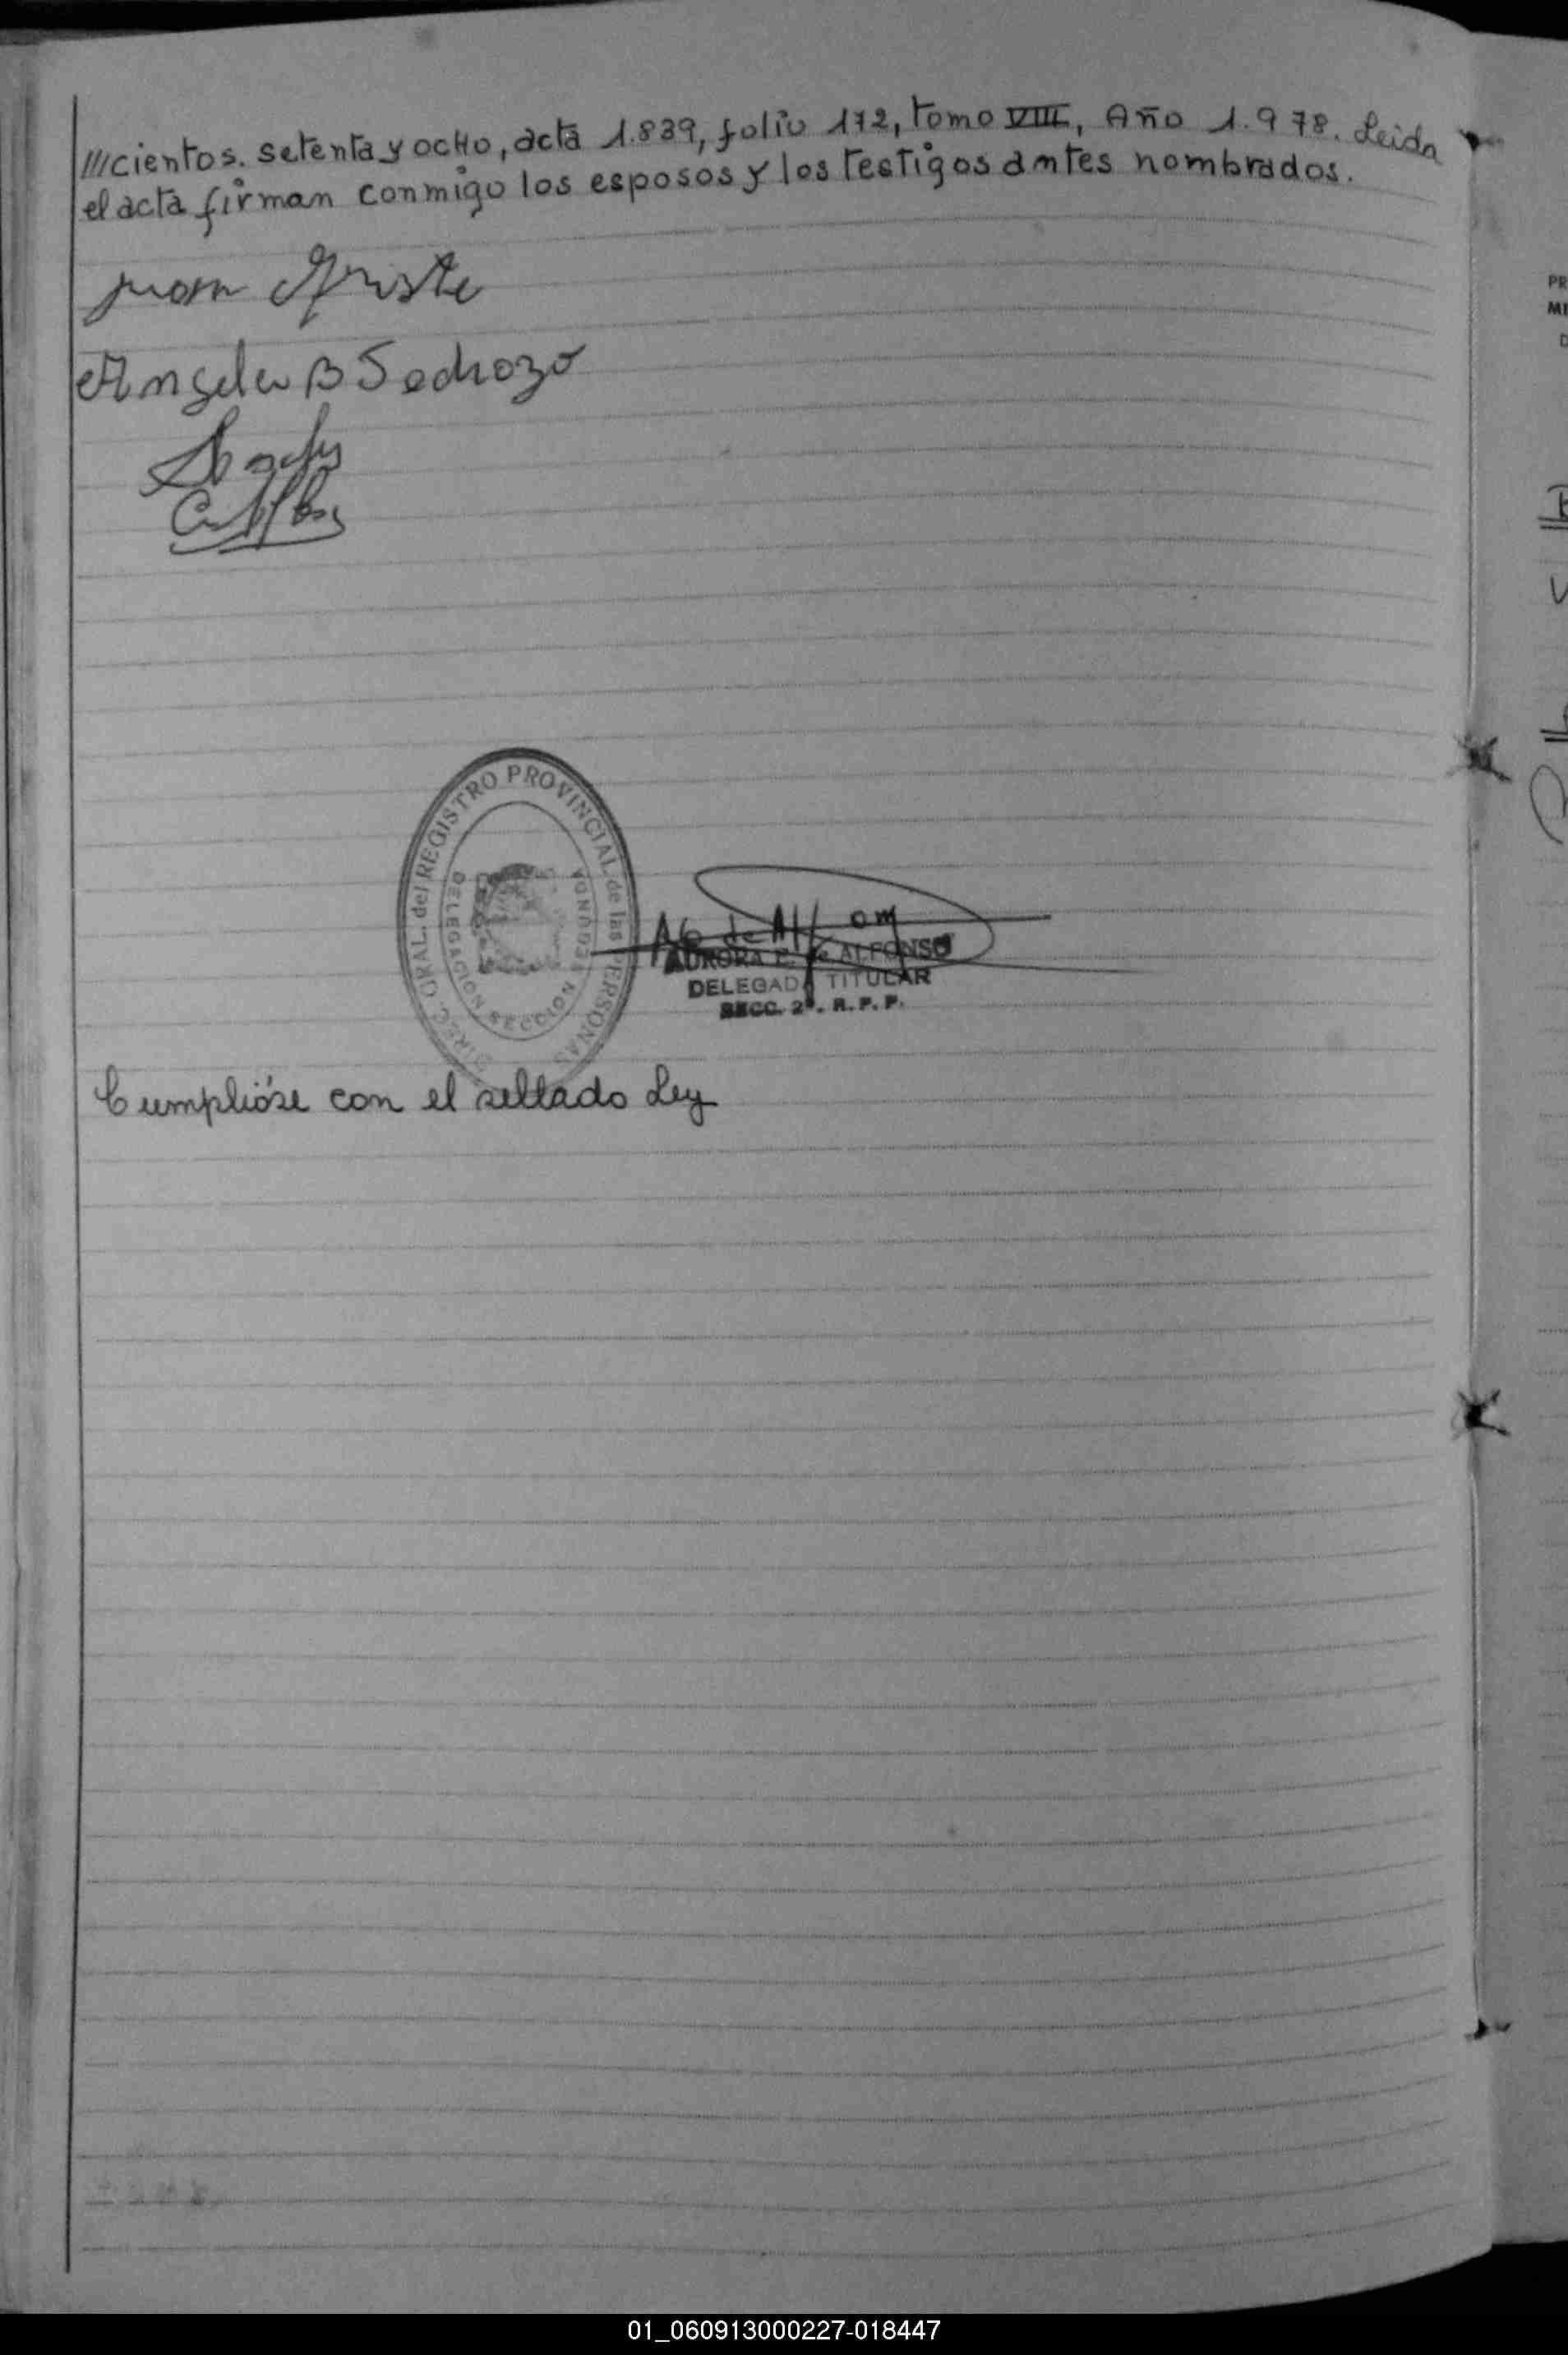 ///cientos. setenta y ocho, acta 1.839, folio 172, Tomo VIII, Año 1.978. Leida
el acta firman conmigo los esposos y los testigos antes nombrados.
Juan
Angela B Pedrozo
DIREC. GRAL. del REGISTRO PROVINCIAL de las PERSONAS
DELEGACION SECCION SEGUNDA
A E de Alfonso
AURORA E. de ALFONSO
DELEGADA TITULAR
SECC. 2ª. R. P. P.
Cumplióse con el sellado Ley
PR
MI
D
01_060913000227-018447